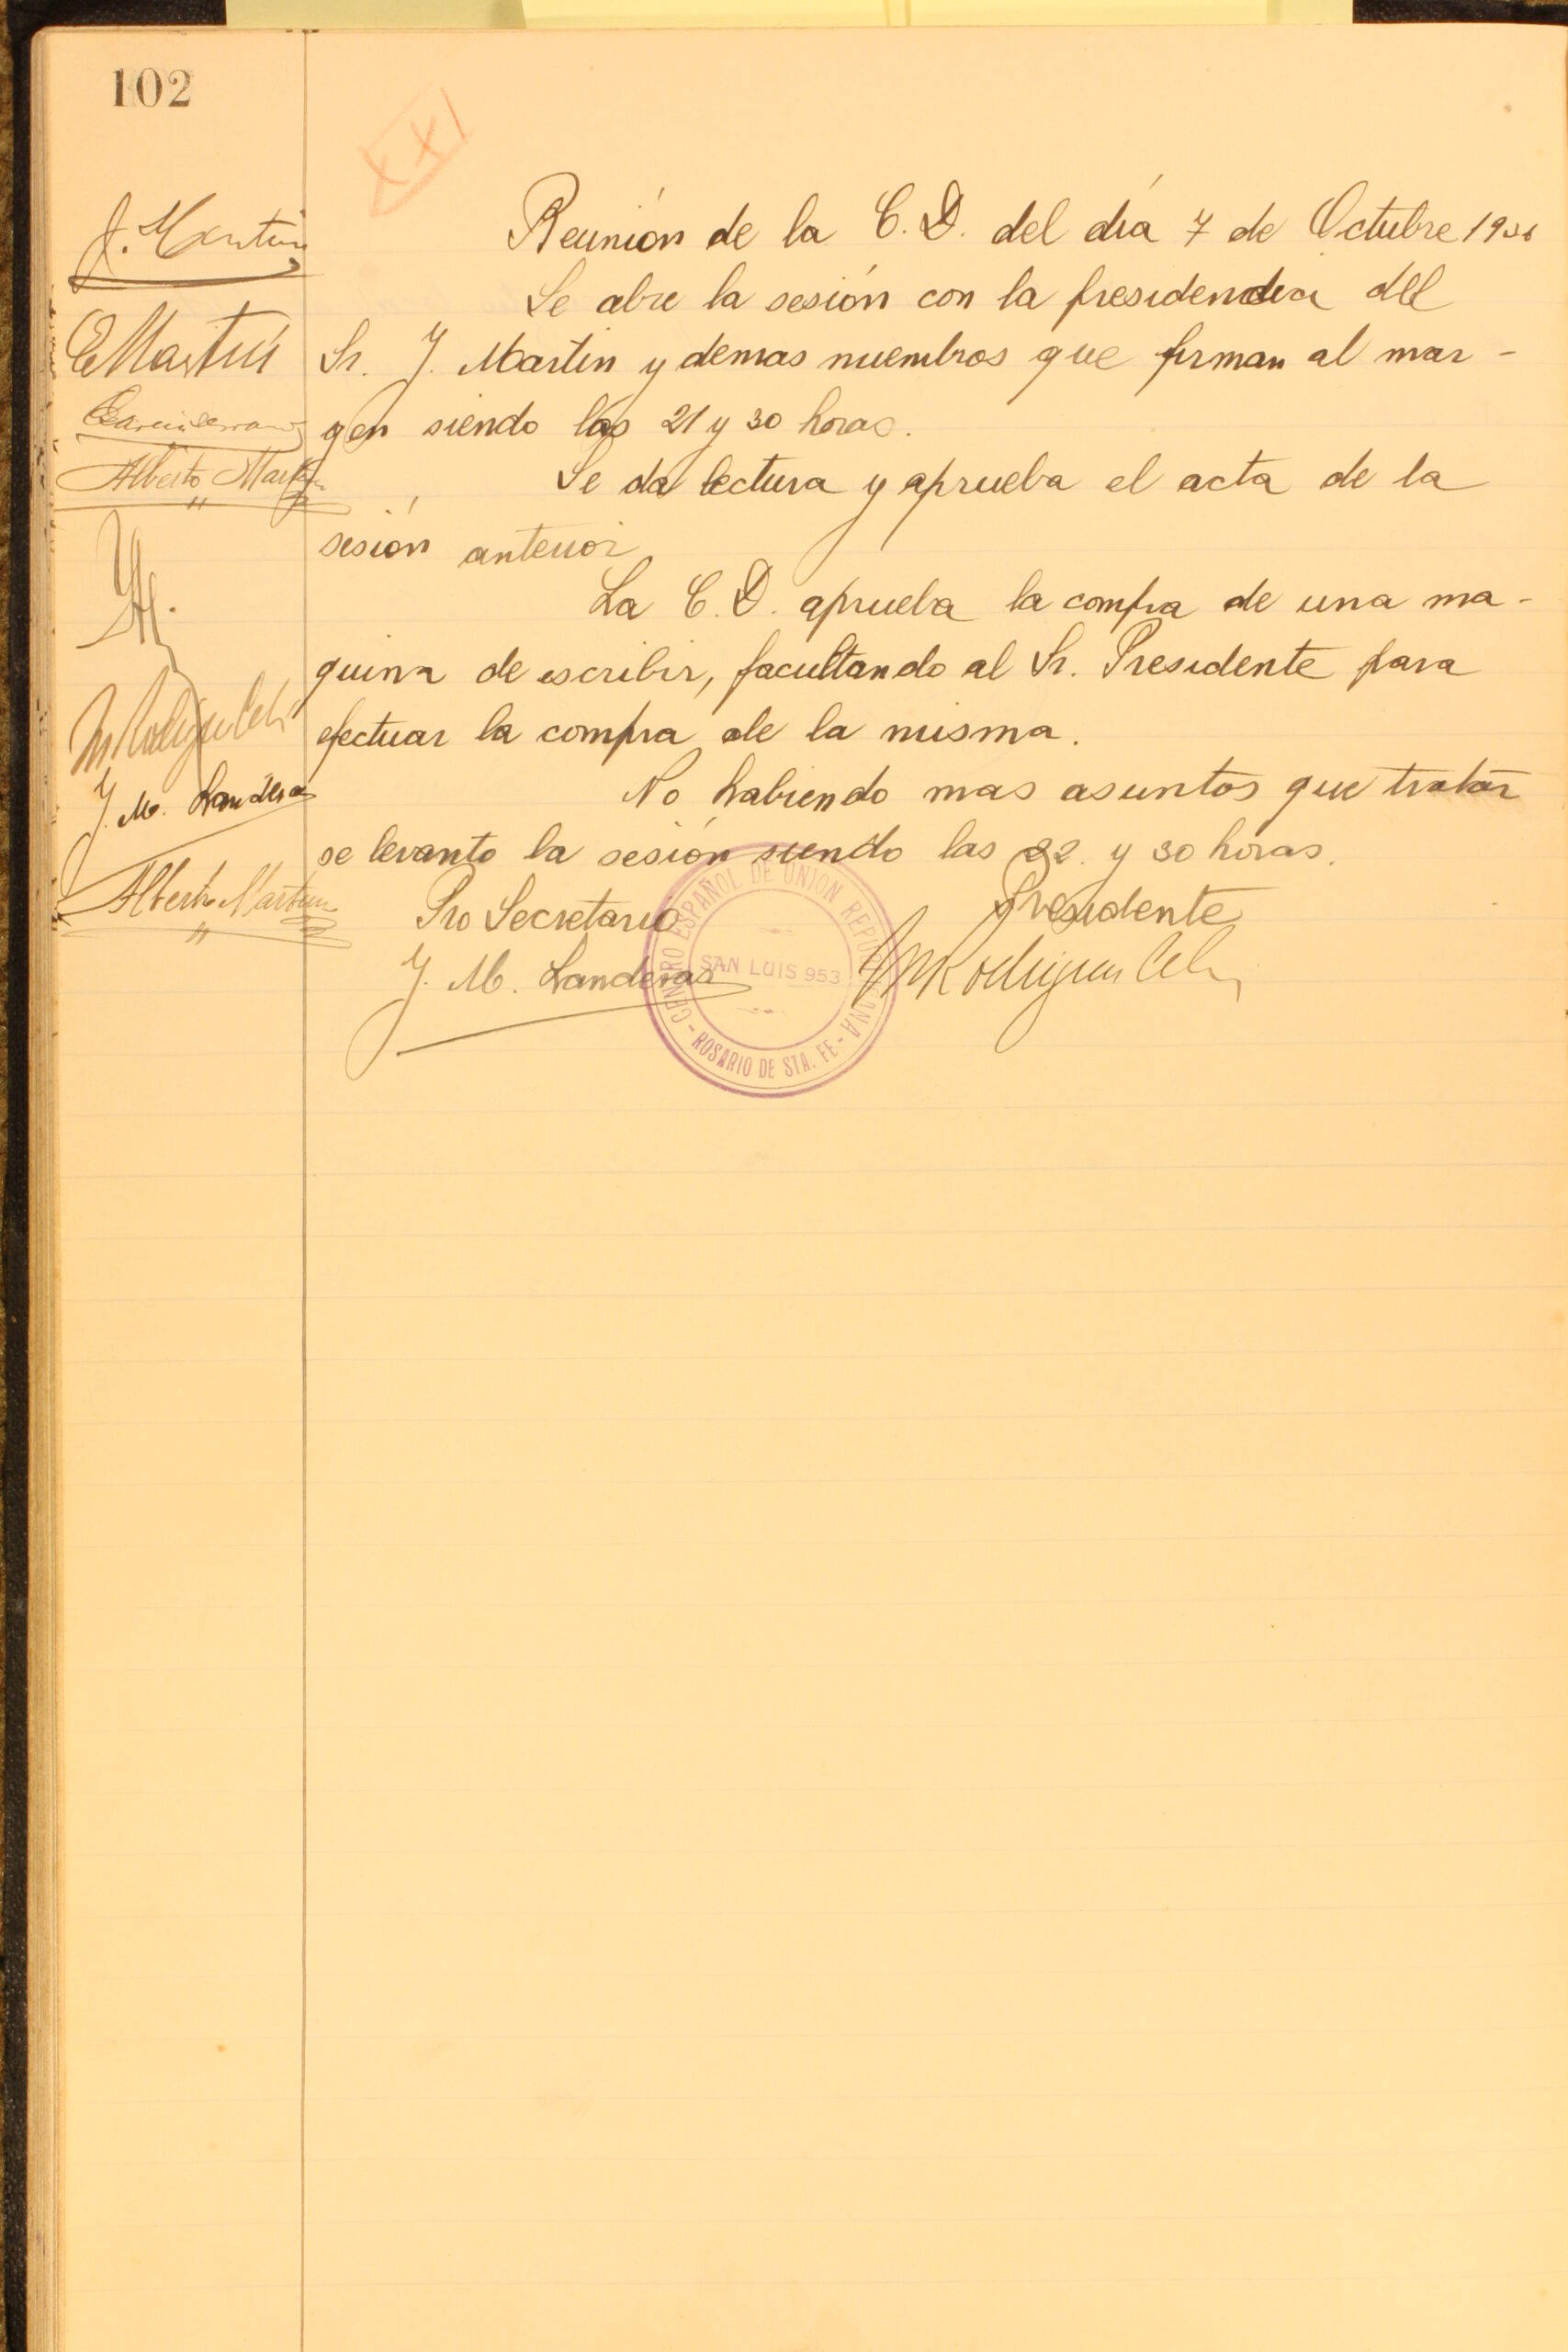 102
XXI
J. Martin
EMartín
Alberto Martin
J. M. Landeras
Alberto Martin
Reunión de la C. D. del día 7 de Octubre
Se abre la sesión con la presidencia del
Sr. J. Martin y demas miembros que firman al mar-
gen siendo las 21 y 30 horas.
Se da lectura y aprueba el acta de la
sesión anterior
La C. D. aprueba la compra de una ma-
quina de escribir, facultando al Sr. Presidente para
efectuar la compra de la misma.
No habiendo mas asuntos que tratar
se levanto la sesión siendo las 22. y 30 horas.
Pro Secretario
Presidente
J. M. Landeras
CENTRO ESPAÑOL DE UNION REPUBLICANA
SAN LUIS 953
- ROSARIO DE STA. FE -